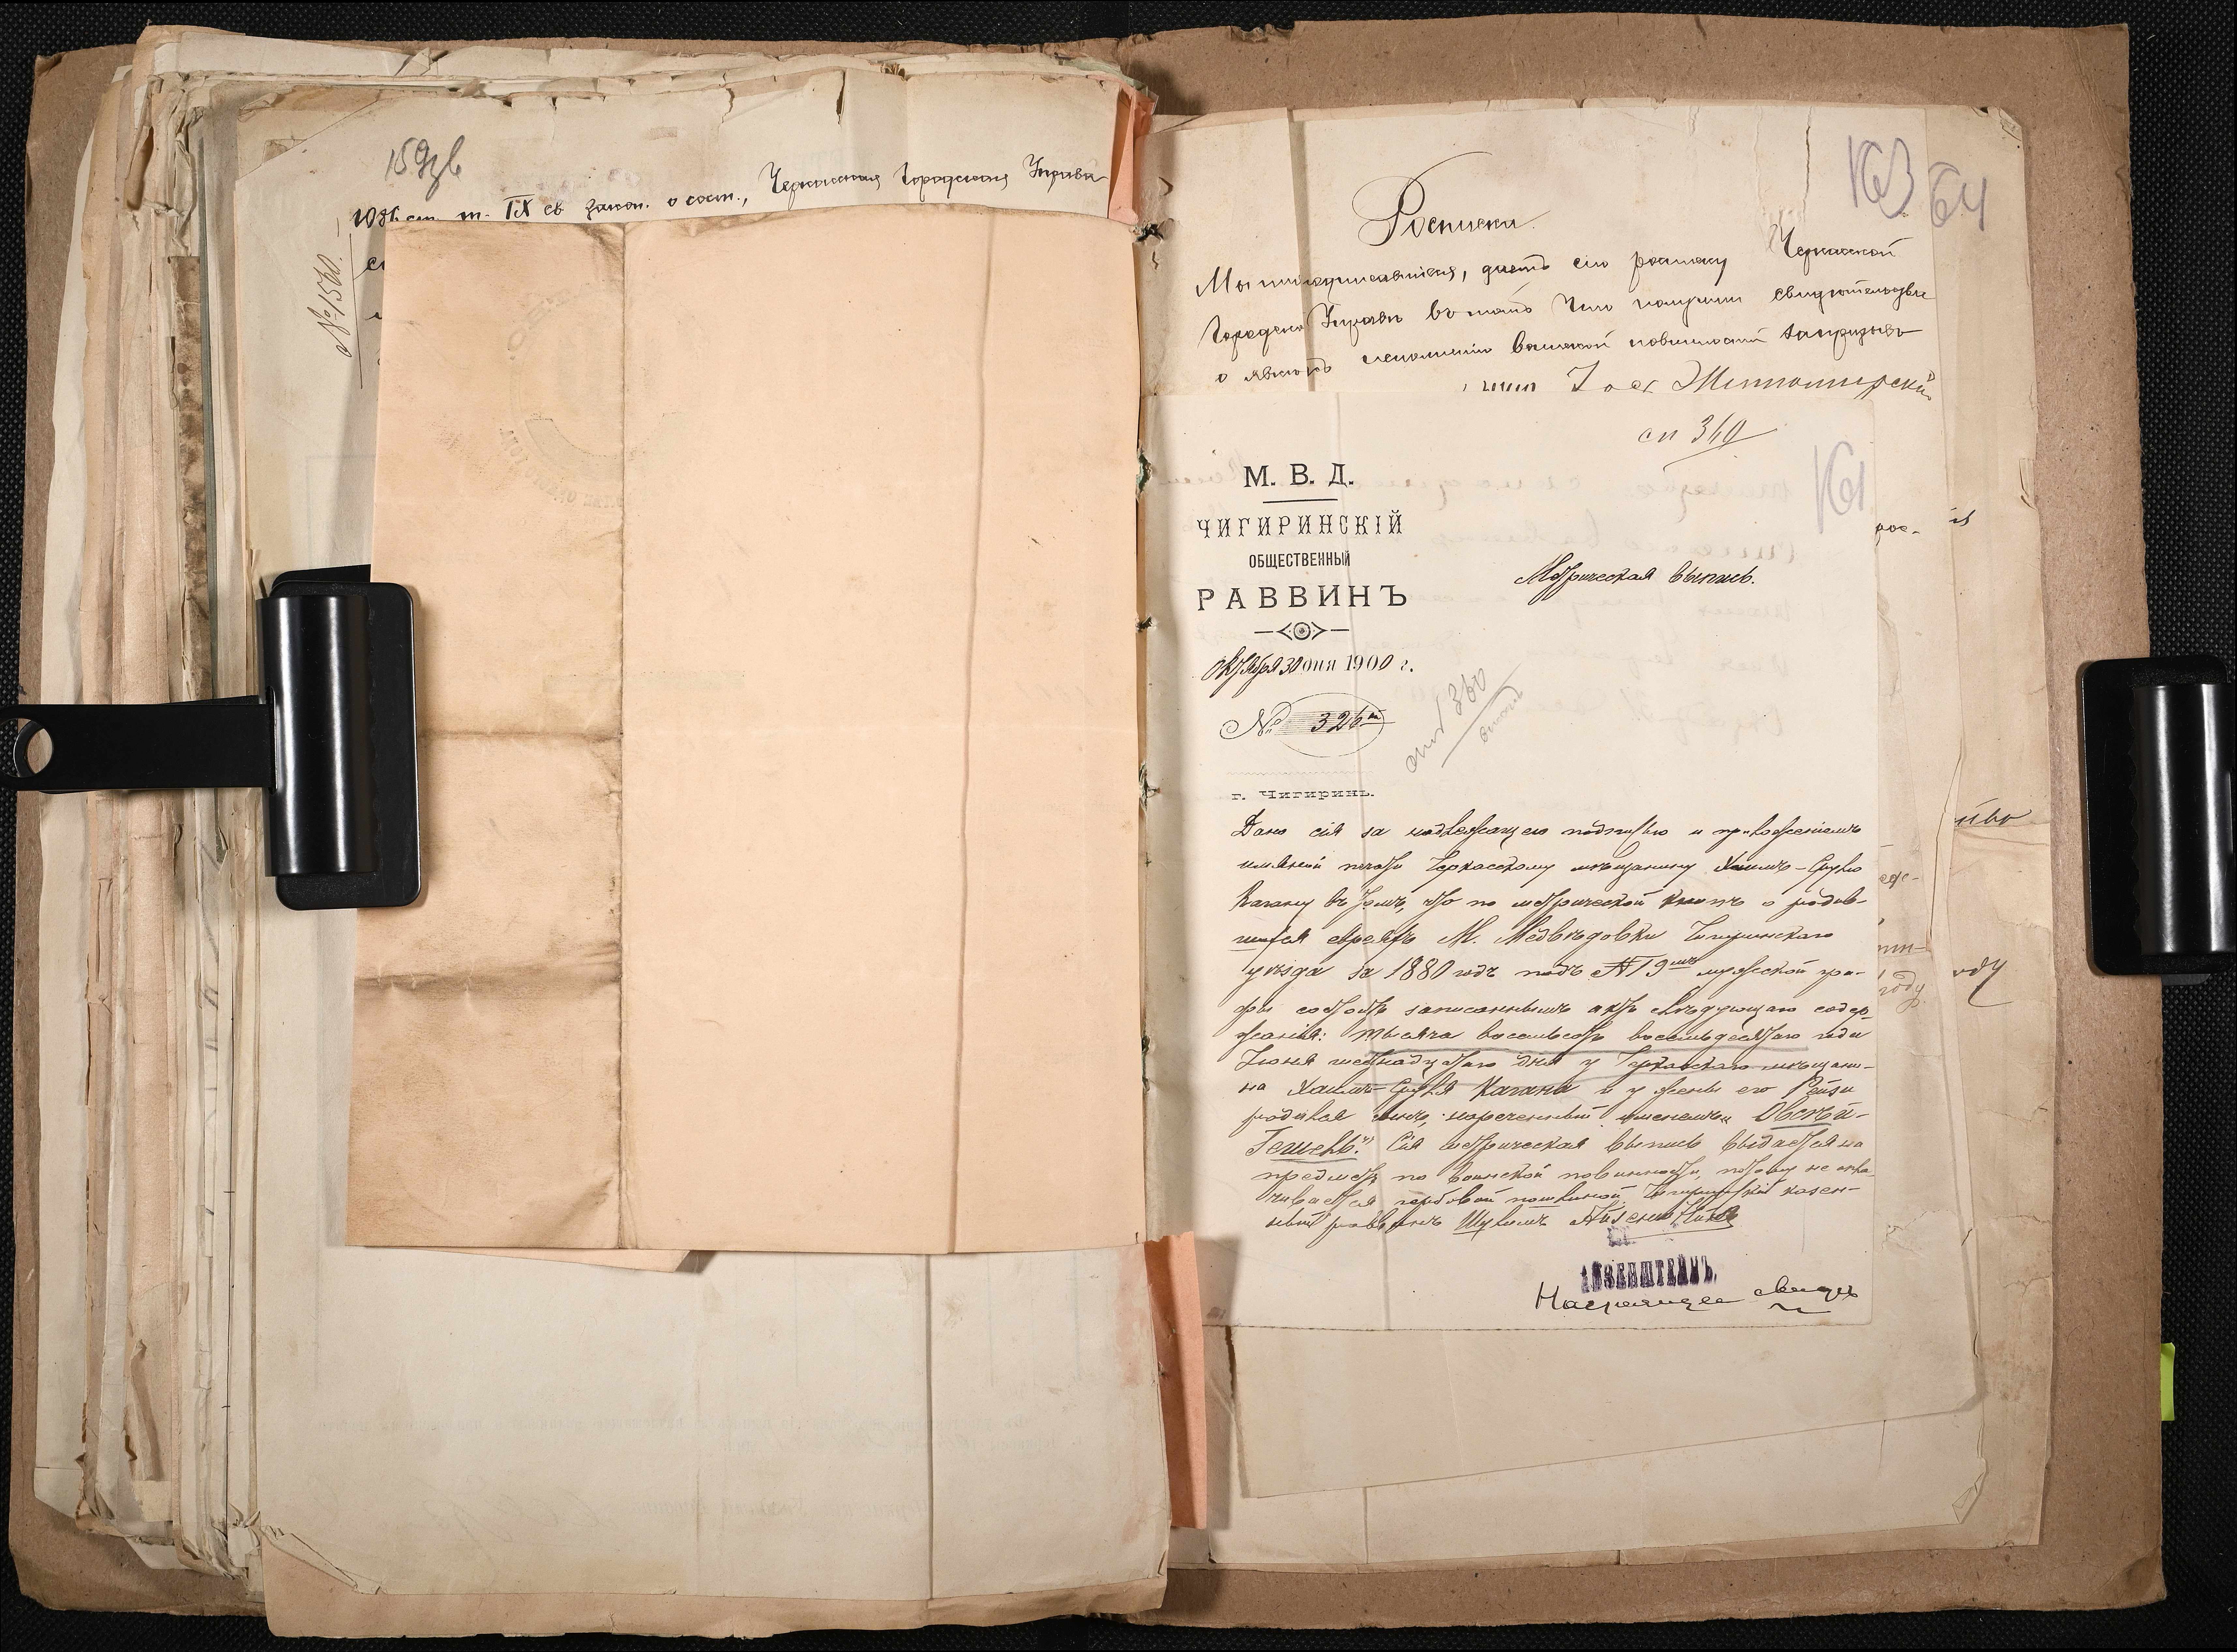 159об
1086 ст. т. IX св закон. о сост., Черкасская Городская Управа
№ 1560.
163 64
Росписка.
Мы нижеподписавшіеся, даемъ сію росписку Черкасской
Городской Управѣ въ томъ что получили свидѣтельства
о явкѣ къ исполненію воинской повинности
Житомирскій
сп 360
161
М. В. Д.
ЧИГИРИНСКІЙ
ОБЩЕСТВЕННЫЙ
РАВВИНЪ
Метрическая выпись.
Октября 30 дня 1900 г.
№ 326
360
г. Чигиринъ.
Дана сія за надлежащею подписью и приложеніемъ
именной печати Черкасскому мѣщанину Хаимъ-Срулю
Кагану въ томъ, что по метрической книгѣ о родив-
шихся евреяхъ М. Медвѣдовки Чигиринскаго
уѣзда за 1880 годъ подъ № 19мъ мужской гра-
фы состоитъ записаннымъ актъ слѣдующаго содер-
жанія: тысяча восемьсотъ восемьдесятаго года
Іюня шестнадцатаго дня у Черкасскаго мѣщани-
на Хаимъ-Сруля Кагана и у жены его Рейзи
родился сынъ, нареченный именемъ „Овсей-
Гешель". Сія метрическая выпись выдается на
предметъ по воинской повинности, потому не опла-
чивается гербовой пошлиной. Чигиринскій казен-
ный раввинъ Шулимъ Айзенштейнъ
АЙЗЕНШТЕЙНЪ.
Настоящее свидѣ
рос-
году